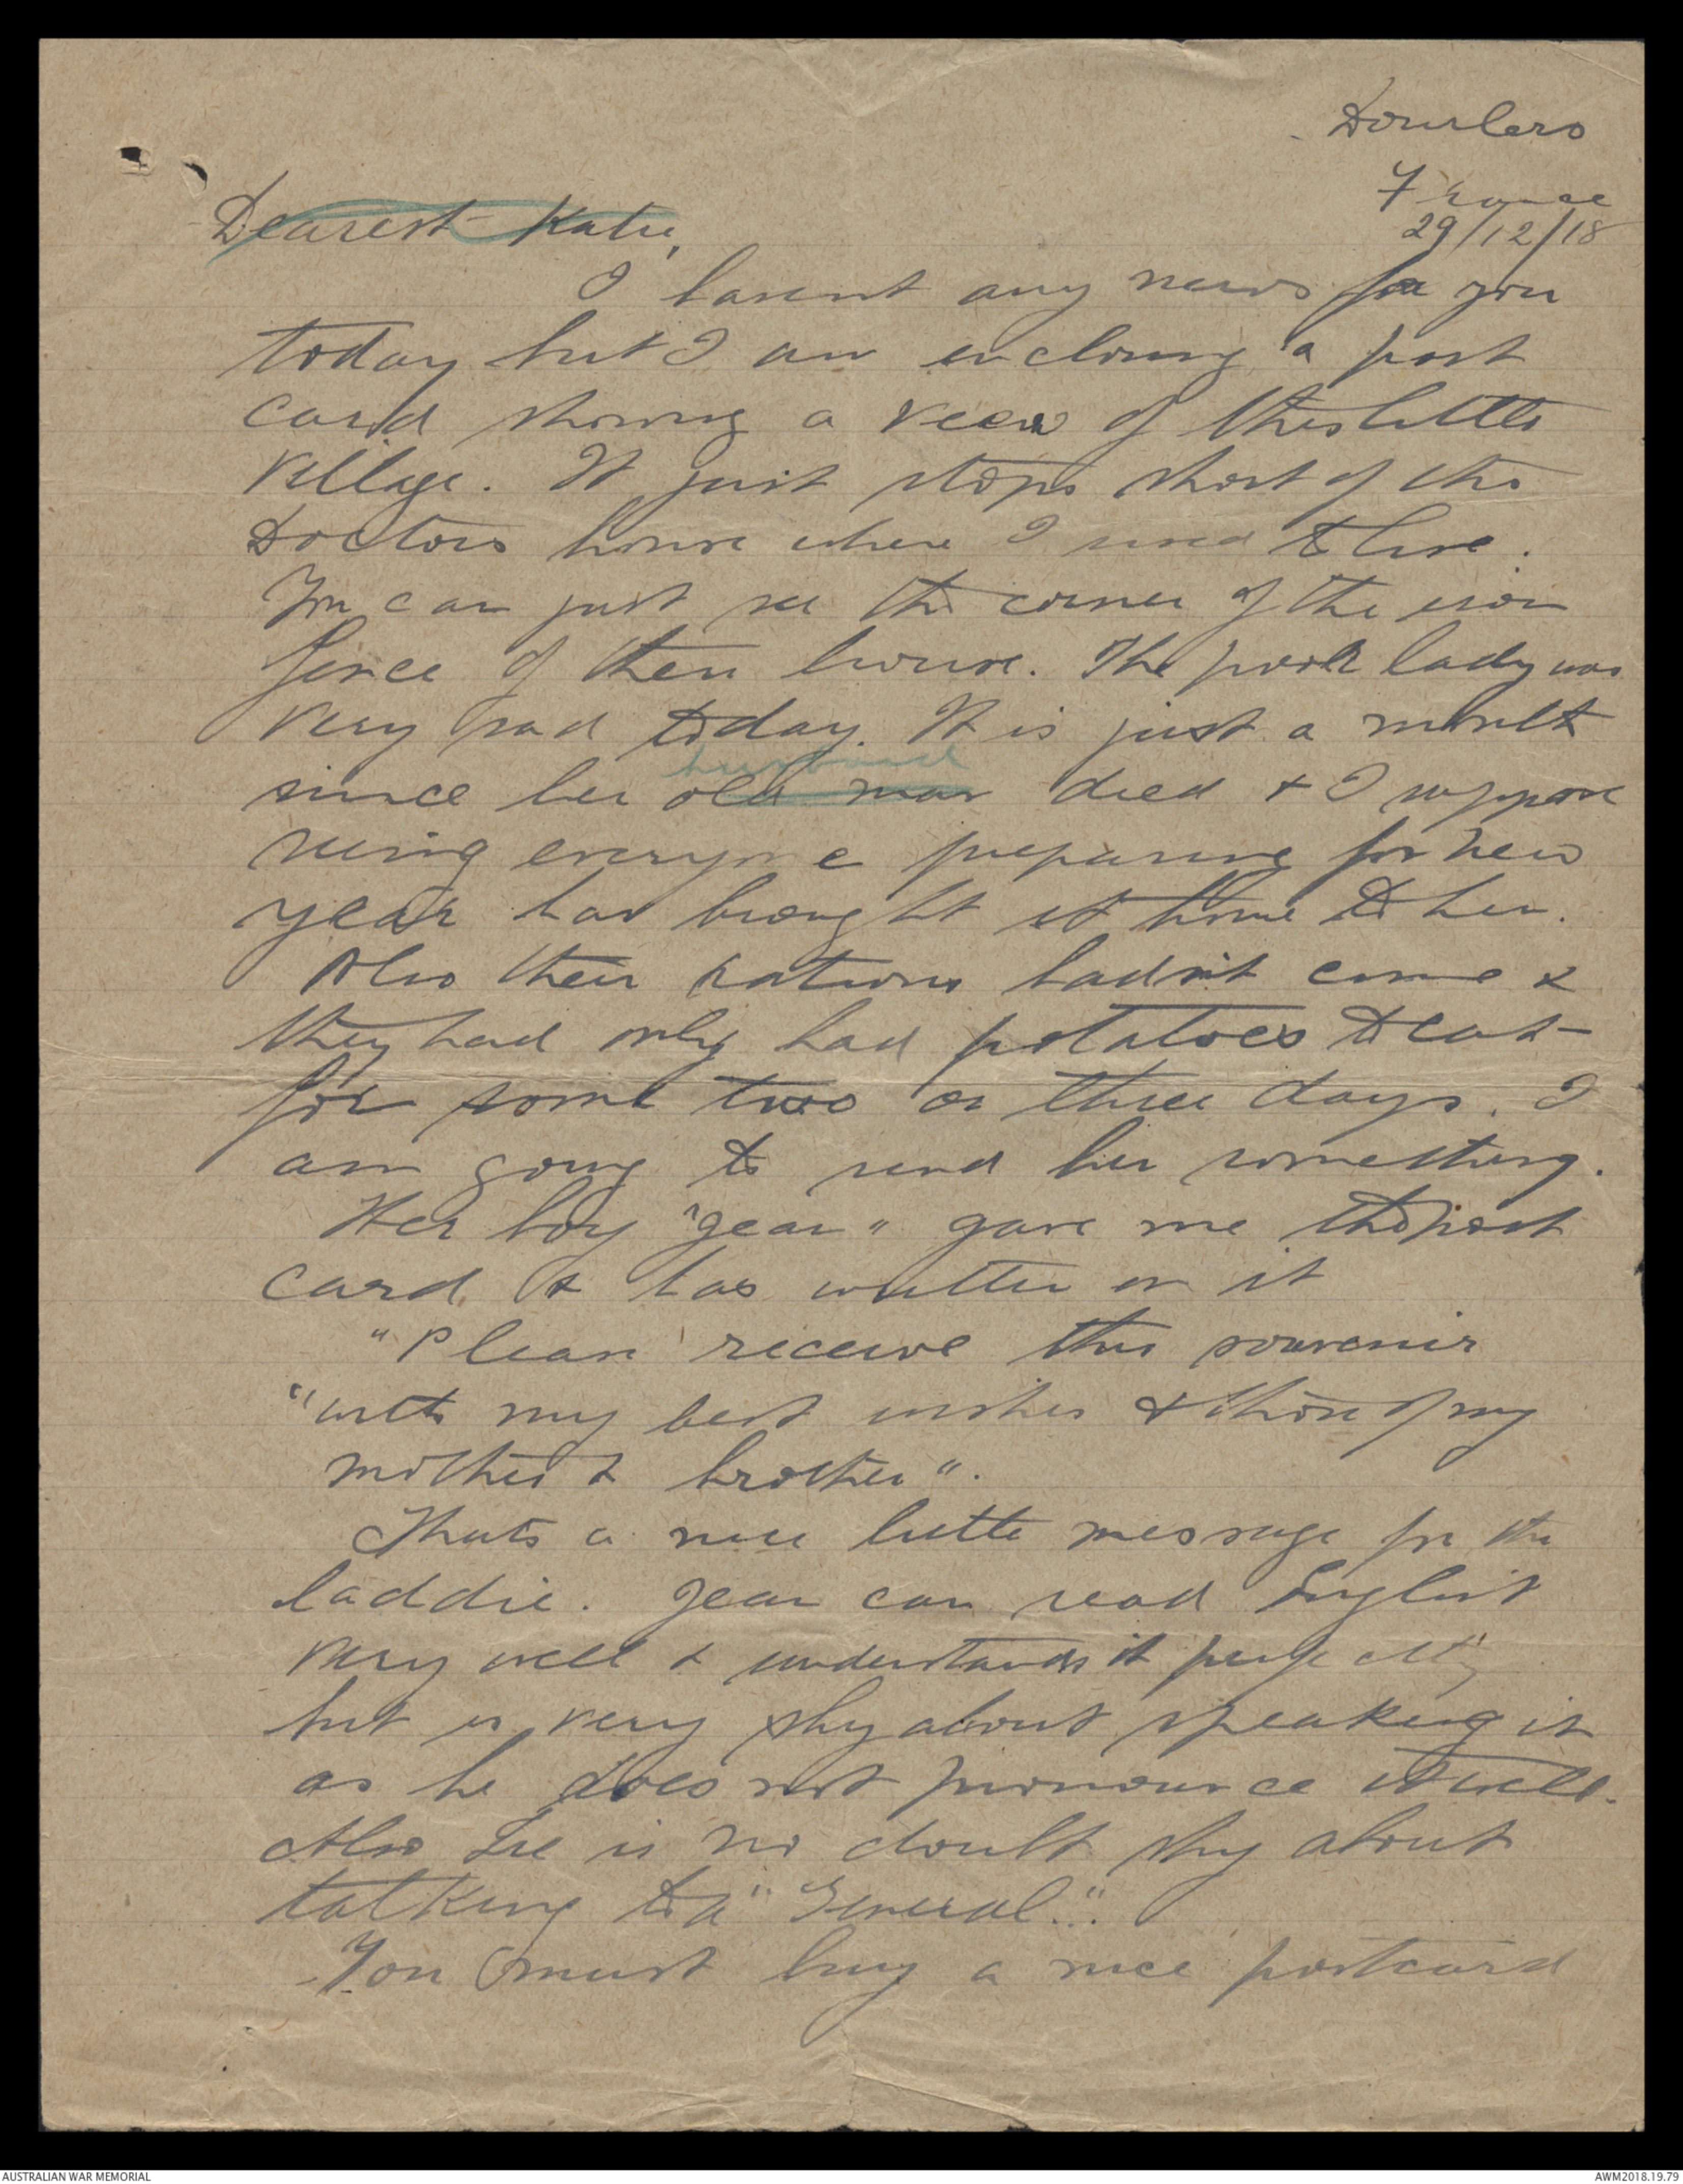 Dourlers
France
29/12/18
Dearest Katie,
I havent any news for you
today but I am enclosing a post
card showing a view of this little
village. It just stops short of the
Doctors house where I used to live.
You can just see the corner of the iron
fence of their house. The poor lady was
very sad today. It is just a month
husband
since her old man died & I suppose
seeing everyone preparing for New
year has brought it home to her.
Also their rations hadn't come &
they had only had potatoes to eat
for some two or three days. I
am going to send her something.
Her boy "Jean" gave me the post
card & has written on it
"Please receive this souvenir
"with my best wishes & those of my
mother & brother".
Thats a nice little message for the
laddie. Jean can read English
very well & understands it perfectly
but is very shy about speaking it
as he does not pronounce it well.
Also he is no doubt shy about
talking to a "General".
You must buy a nice postcard
AUSTRALIAN WAR MEMORIAL
AWM2018.19.79